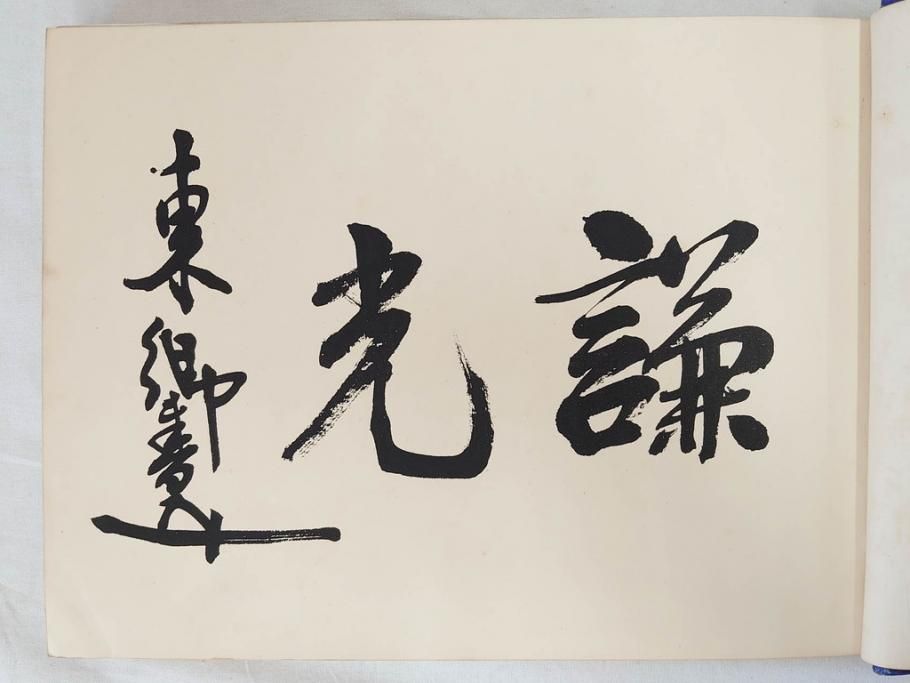 謙光
東郷